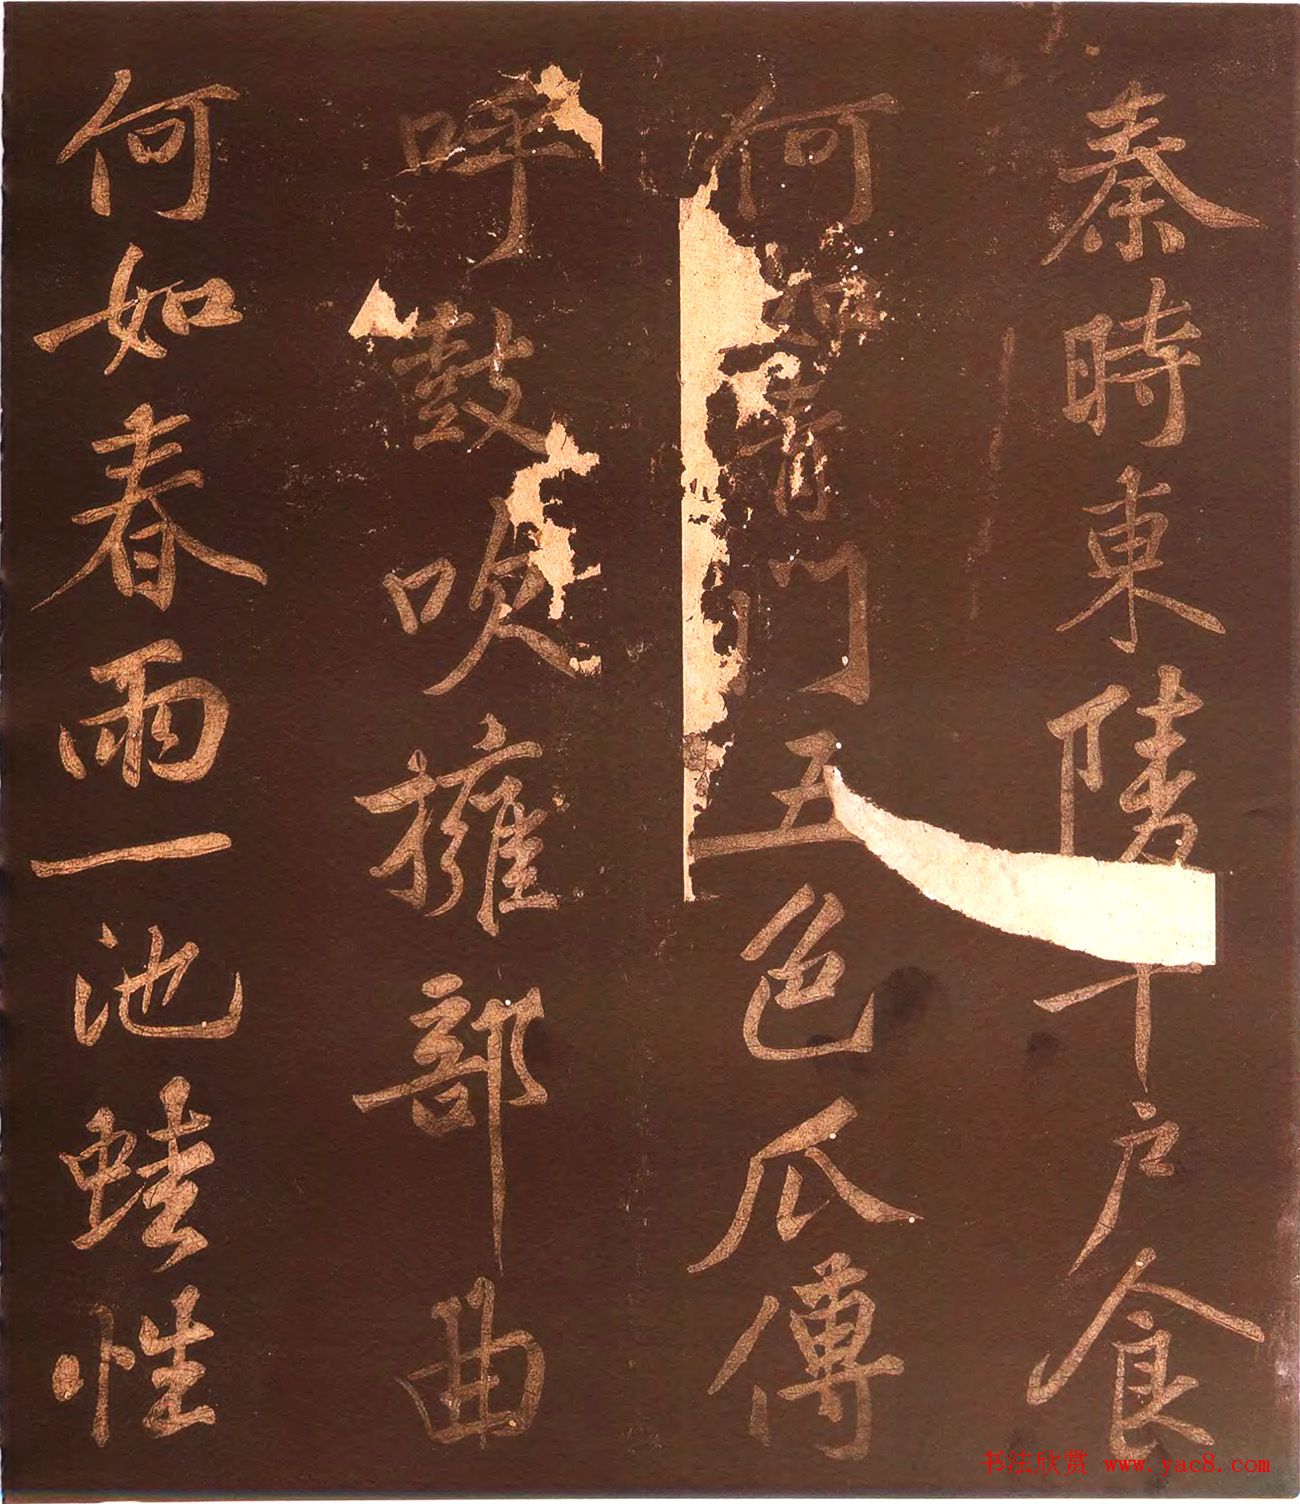 秦時東陵千戶食
何如青門五色瓜傅
呼鼓吹擁部曲
何如春雨一池蛙性
书法欣赏 www.yac8.com